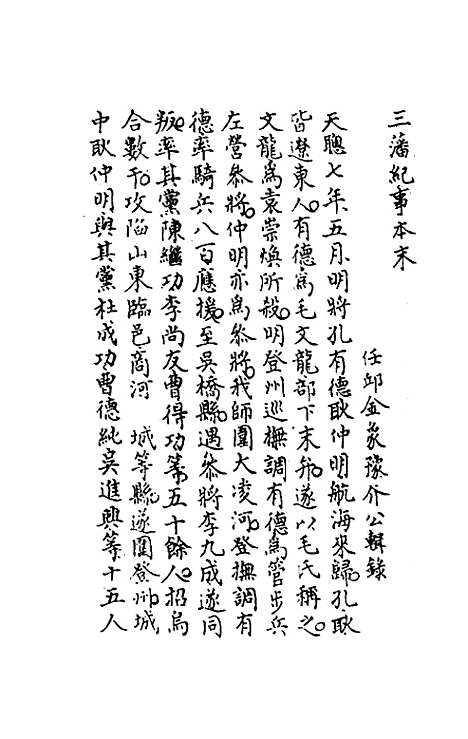 三藩紀事本末
任邱金豪豫介公輯錄
天聰七年五月明將孔有德耿仲明航海來歸孔耿
皆遼東人有德爲毛文龍部下末弁遂以毛氏稱之
文龍爲袁崇煥所殺明登州巡撫調有德爲管步兵
左營叅將仲明亦爲叅將我師圍大凌河登撫調有
德率騎兵八百應援至吳橋縣遇叅將李九成遂同
叛率其黨陳繼功李尚友曹得功等五十餘人招烏
合數千攻陷山東臨邑商河 城等縣遂圍登州城
中耿仲明與其黨杜成功曹德純吳進興等十五人